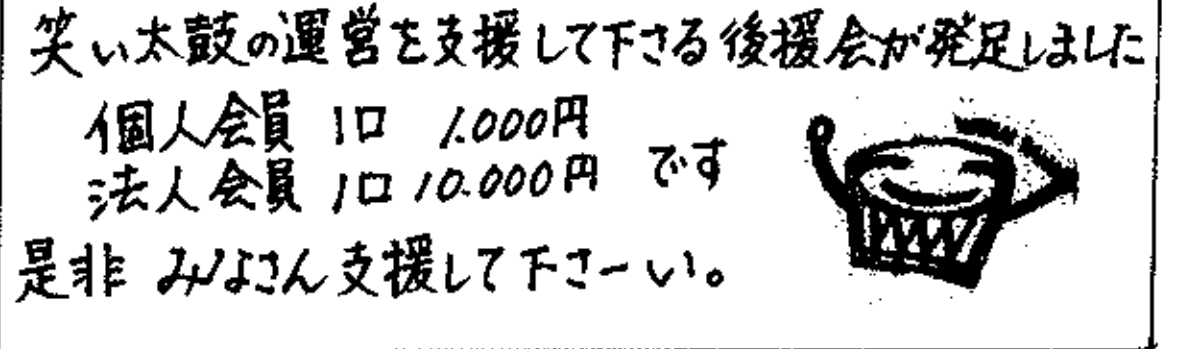 笑い太鼓の運営を支援して下さる後援会が発足しました
個人会員 1口 1.000円
法人会員 1口 10.000円 です
是非 みなさん支援して下さーい。